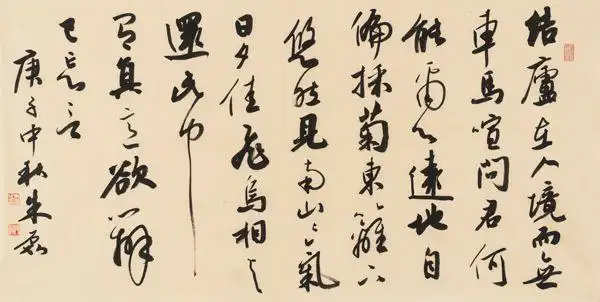 結廬在人境而無
車馬喧問君何
能爾心遠地自
偏採菊東籬下
悠然見南山〻氣
日夕佳飛鳥相与
還此中
有真意欲辨
已忘言
庚子中秋朱